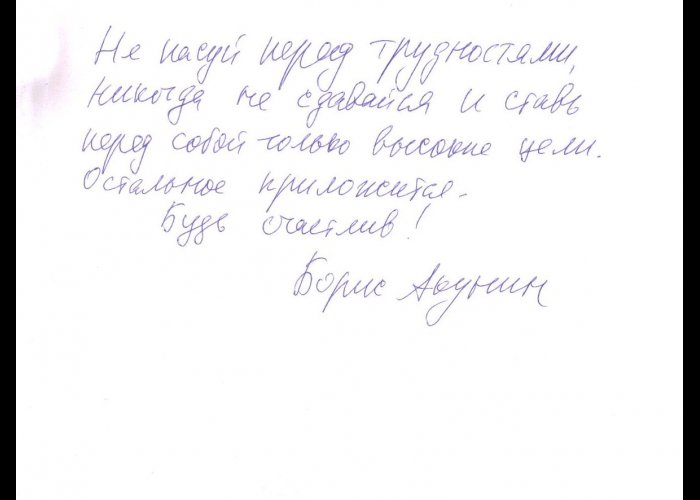 Не пасуй перед трудностями,
никогда не сдавайся и ставь
перед собой только высокие цели.
Остальное приложится.
Будь счастлив!
Борис Акунин